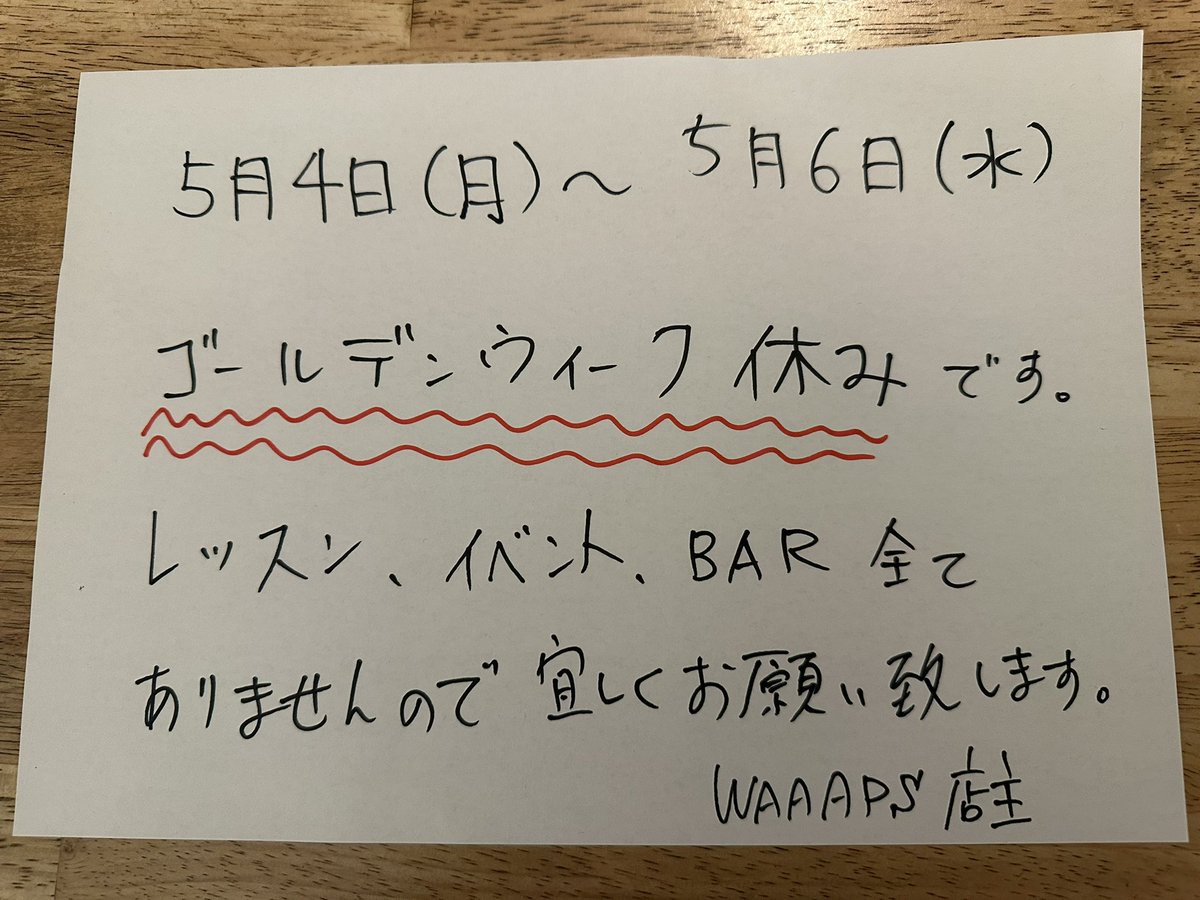 5月4日(月)～ 5月6日(水)
ゴールデンウィーク休みです。
レッスン、イベント、BAR 全て
ありませんので宜しくお願い致します。
WAAAPS 店主